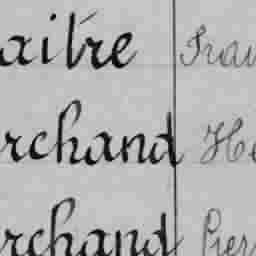 aitre
rchand He
rchand Pier